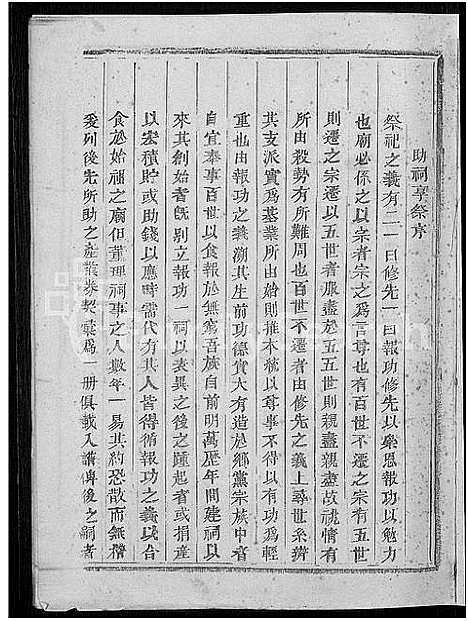 助祠享祭序
祭祀之義有二一曰修先一曰報功修先以舉恩報功以勉力
也廟必係之以宗者宗之爲言尊也有百世不遷之宗有五世
則遷之宗遷以五世者服盡於五五世則親盡親盡故祧情有
所由殺勢有所難周也百世不遷者由修先之義上尋世系辨
其支派實爲基業所由始則推本統以尊事不得以有功爲輕
重也由報功之義溯其生前功德實大有造於鄉黨宗族中者
自宜奉事百世以食報於無窮吾族自前明萬歷年間建祠以
來其創始者旣別立報功一祠以表異之後之踵起者或捐產
以宏積貯或助錢以應時需代有其人皆得循報功之義以合
食於始祖之廟但董理祠事之人數年一易其約恐散而無攷
爰列後先所助之產業券契彙爲一册俱載入譜傳後之嗣者